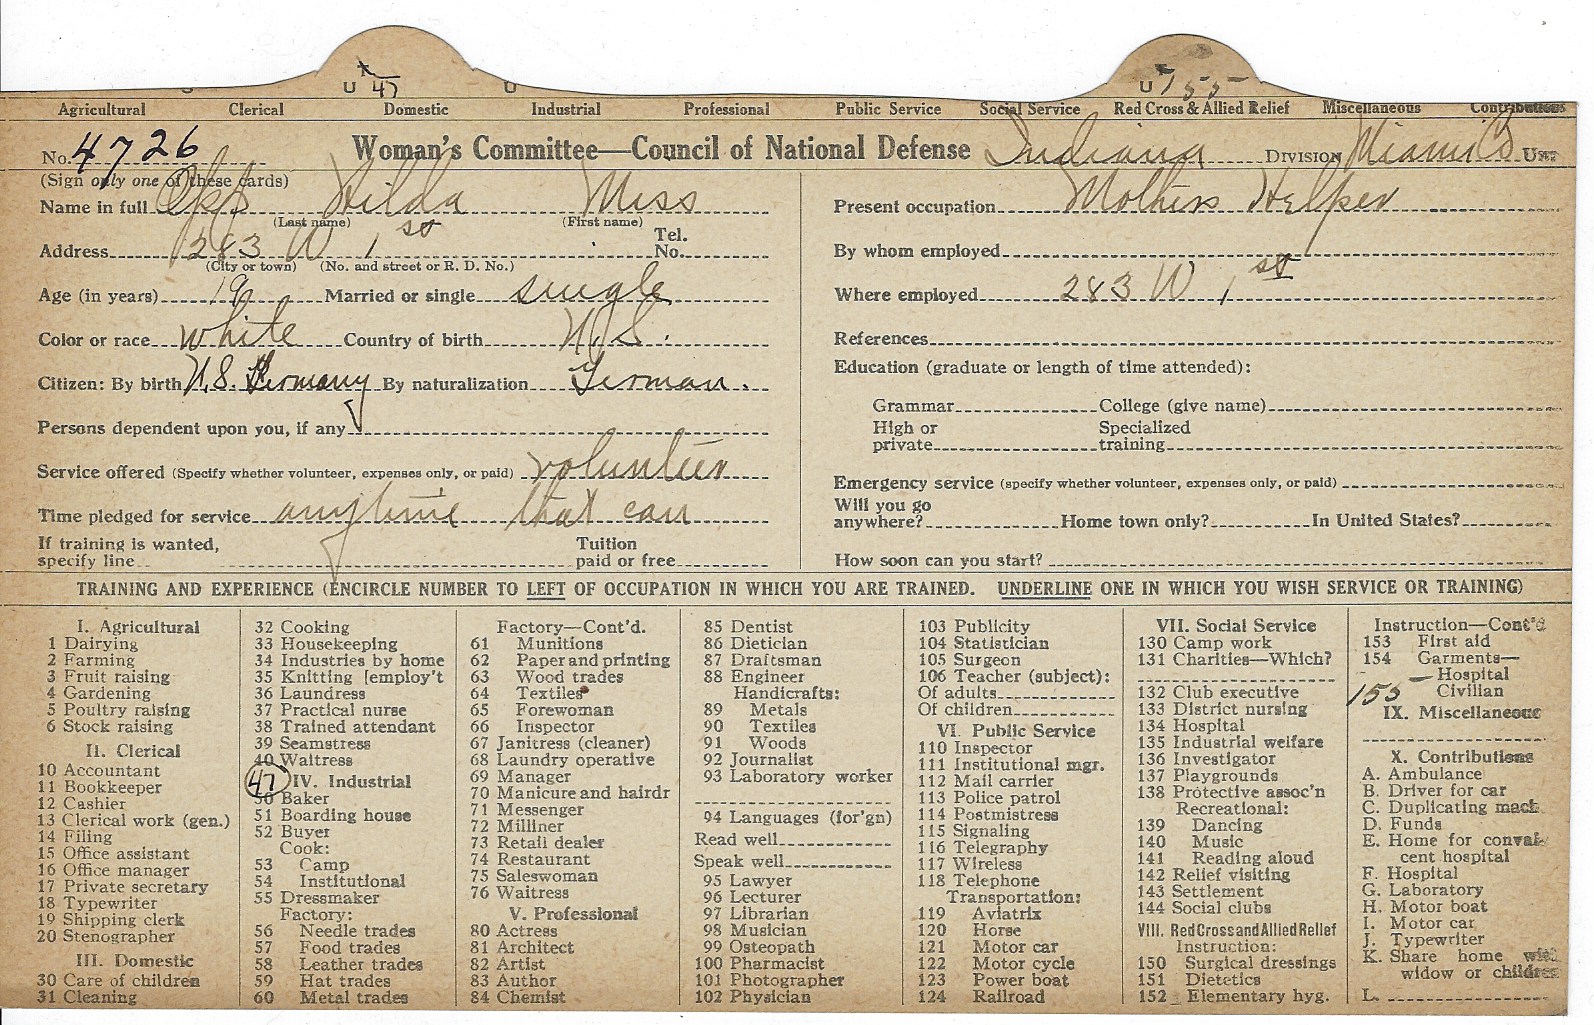 U 47 U U 155
Agricultural Clerical Domestic Industrial Professional Public Service Social Service Red Cross & Allied Relief Miscellaneous Contributions
No. 4726 Woman's Committee—Council of National Defense Indiana DIVISION Miami Co Unit
(Sign only one of these cards)
Name in full Opp Hilda Miss
(Last name) (First name)
Address 283 W 1st Tel. No.
(City or town) (No. and street or R. D. No.)
Age (in years) 19 Married or single single
Color or race white Country of birth U.S.
Citizen: By birth U.S. Germany By naturalization German.
Persons dependent upon you, if any
Service offered (Specify whether volunteer, expenses only, or paid) volunteer
Time pledged for service anytime that can
If training is wanted, specify line Tuition paid or free
Present occupation Mothers Helper
By whom employed
Where employed 283 W 1st
References
Education (graduate or length of time attended):
Grammar College (give name)
High or private Specialized training
Emergency service (specify whether volunteer, expenses only, or paid)
Will you go anywhere? Home town only? In United States?
How soon can you start?
TRAINING AND EXPERIENCE (ENCIRCLE NUMBER TO LEFT OF OCCUPATION IN WHICH YOU ARE TRAINED. UNDERLINE ONE IN WHICH YOU WISH SERVICE OR TRAINING)
I. Agricultural
1 Dairying
2 Farming
3 Fruit raising
4 Gardening
5 Poultry raising
6 Stock raising
II. Clerical
10 Accountant
11 Bookkeeper
12 Cashier
13 Clerical work (gen.)
14 Filing
15 Office assistant
16 Office manager
17 Private secretary
18 Typewriter
19 Shipping clerk
20 Stenographer
III. Domestic
30 Care of children
31 Cleaning
32 Cooking
33 Housekeeping
34 Industries by home
35 Knitting [employ't
36 Laundress
37 Practical nurse
38 Trained attendant
39 Seamstress
40 Waitress
47 IV. Industrial
50 Baker
51 Boarding house
52 Buyer
Cook:
53 Camp
54 Institutional
55 Dressmaker
Factory:
56 Needle trades
57 Food trades
58 Leather trades
59 Hat trades
60 Metal trades
Factory—Cont'd.
61 Munitions
62 Paper and printing
63 Wood trades
64 Textiles
65 Forewoman
66 Inspector
67 Janitress (cleaner)
68 Laundry operative
69 Manager
70 Manicure and hairdr
71 Messenger
72 Milliner
73 Retail dealer
74 Restaurant
75 Saleswoman
76 Waitress
V. Professional
80 Actress
81 Architect
82 Artist
83 Author
84 Chemist
85 Dentist
86 Dietician
87 Draftsman
88 Engineer
Handicrafts:
89 Metals
90 Textiles
91 Woods
92 Journalist
93 Laboratory worker
94 Languages (for'gn)
Read well
Speak well
95 Lawyer
96 Lecturer
97 Librarian
98 Musician
99 Osteopath
100 Pharmacist
101 Photographer
102 Physician
103 Publicity
104 Statistician
105 Surgeon
106 Teacher (subject):
Of adults
Of children
VI. Public Service
110 Inspector
111 Institutional mgr.
112 Mail carrier
113 Police patrol
114 Postmistress
115 Signaling
116 Telegraphy
117 Wireless
118 Telephone
Transportation:
119 Aviatrix
120 Horse
121 Motor car
122 Motor cycle
123 Power boat
124 Railroad
VII. Social Service
130 Camp work
131 Charities—Which?
132 Club executive
133 District nursing
134 Hospital
135 Industrial welfare
136 Investigator
137 Playgrounds
138 Protective assoc'n
Recreational:
139 Dancing
140 Music
141 Reading aloud
142 Relief visiting
143 Settlement
144 Social clubs
VIII. Red Cross and Allied Relief
Instruction:
150 Surgical dressings
151 Dietetics
152 Elementary hyg.
Instruction—Cont'd
153 First aid
154 Garments—
Hospital
155 Civilian
IX. Miscellaneous
X. Contributions
A. Ambulance
B. Driver for car
C. Duplicating mach.
D. Funds
E. Home for conval-
cent hospital
F. Hospital
G. Laboratory
H. Motor boat
I. Motor car
J. Typewriter
K. Share home with
widow or children
L.